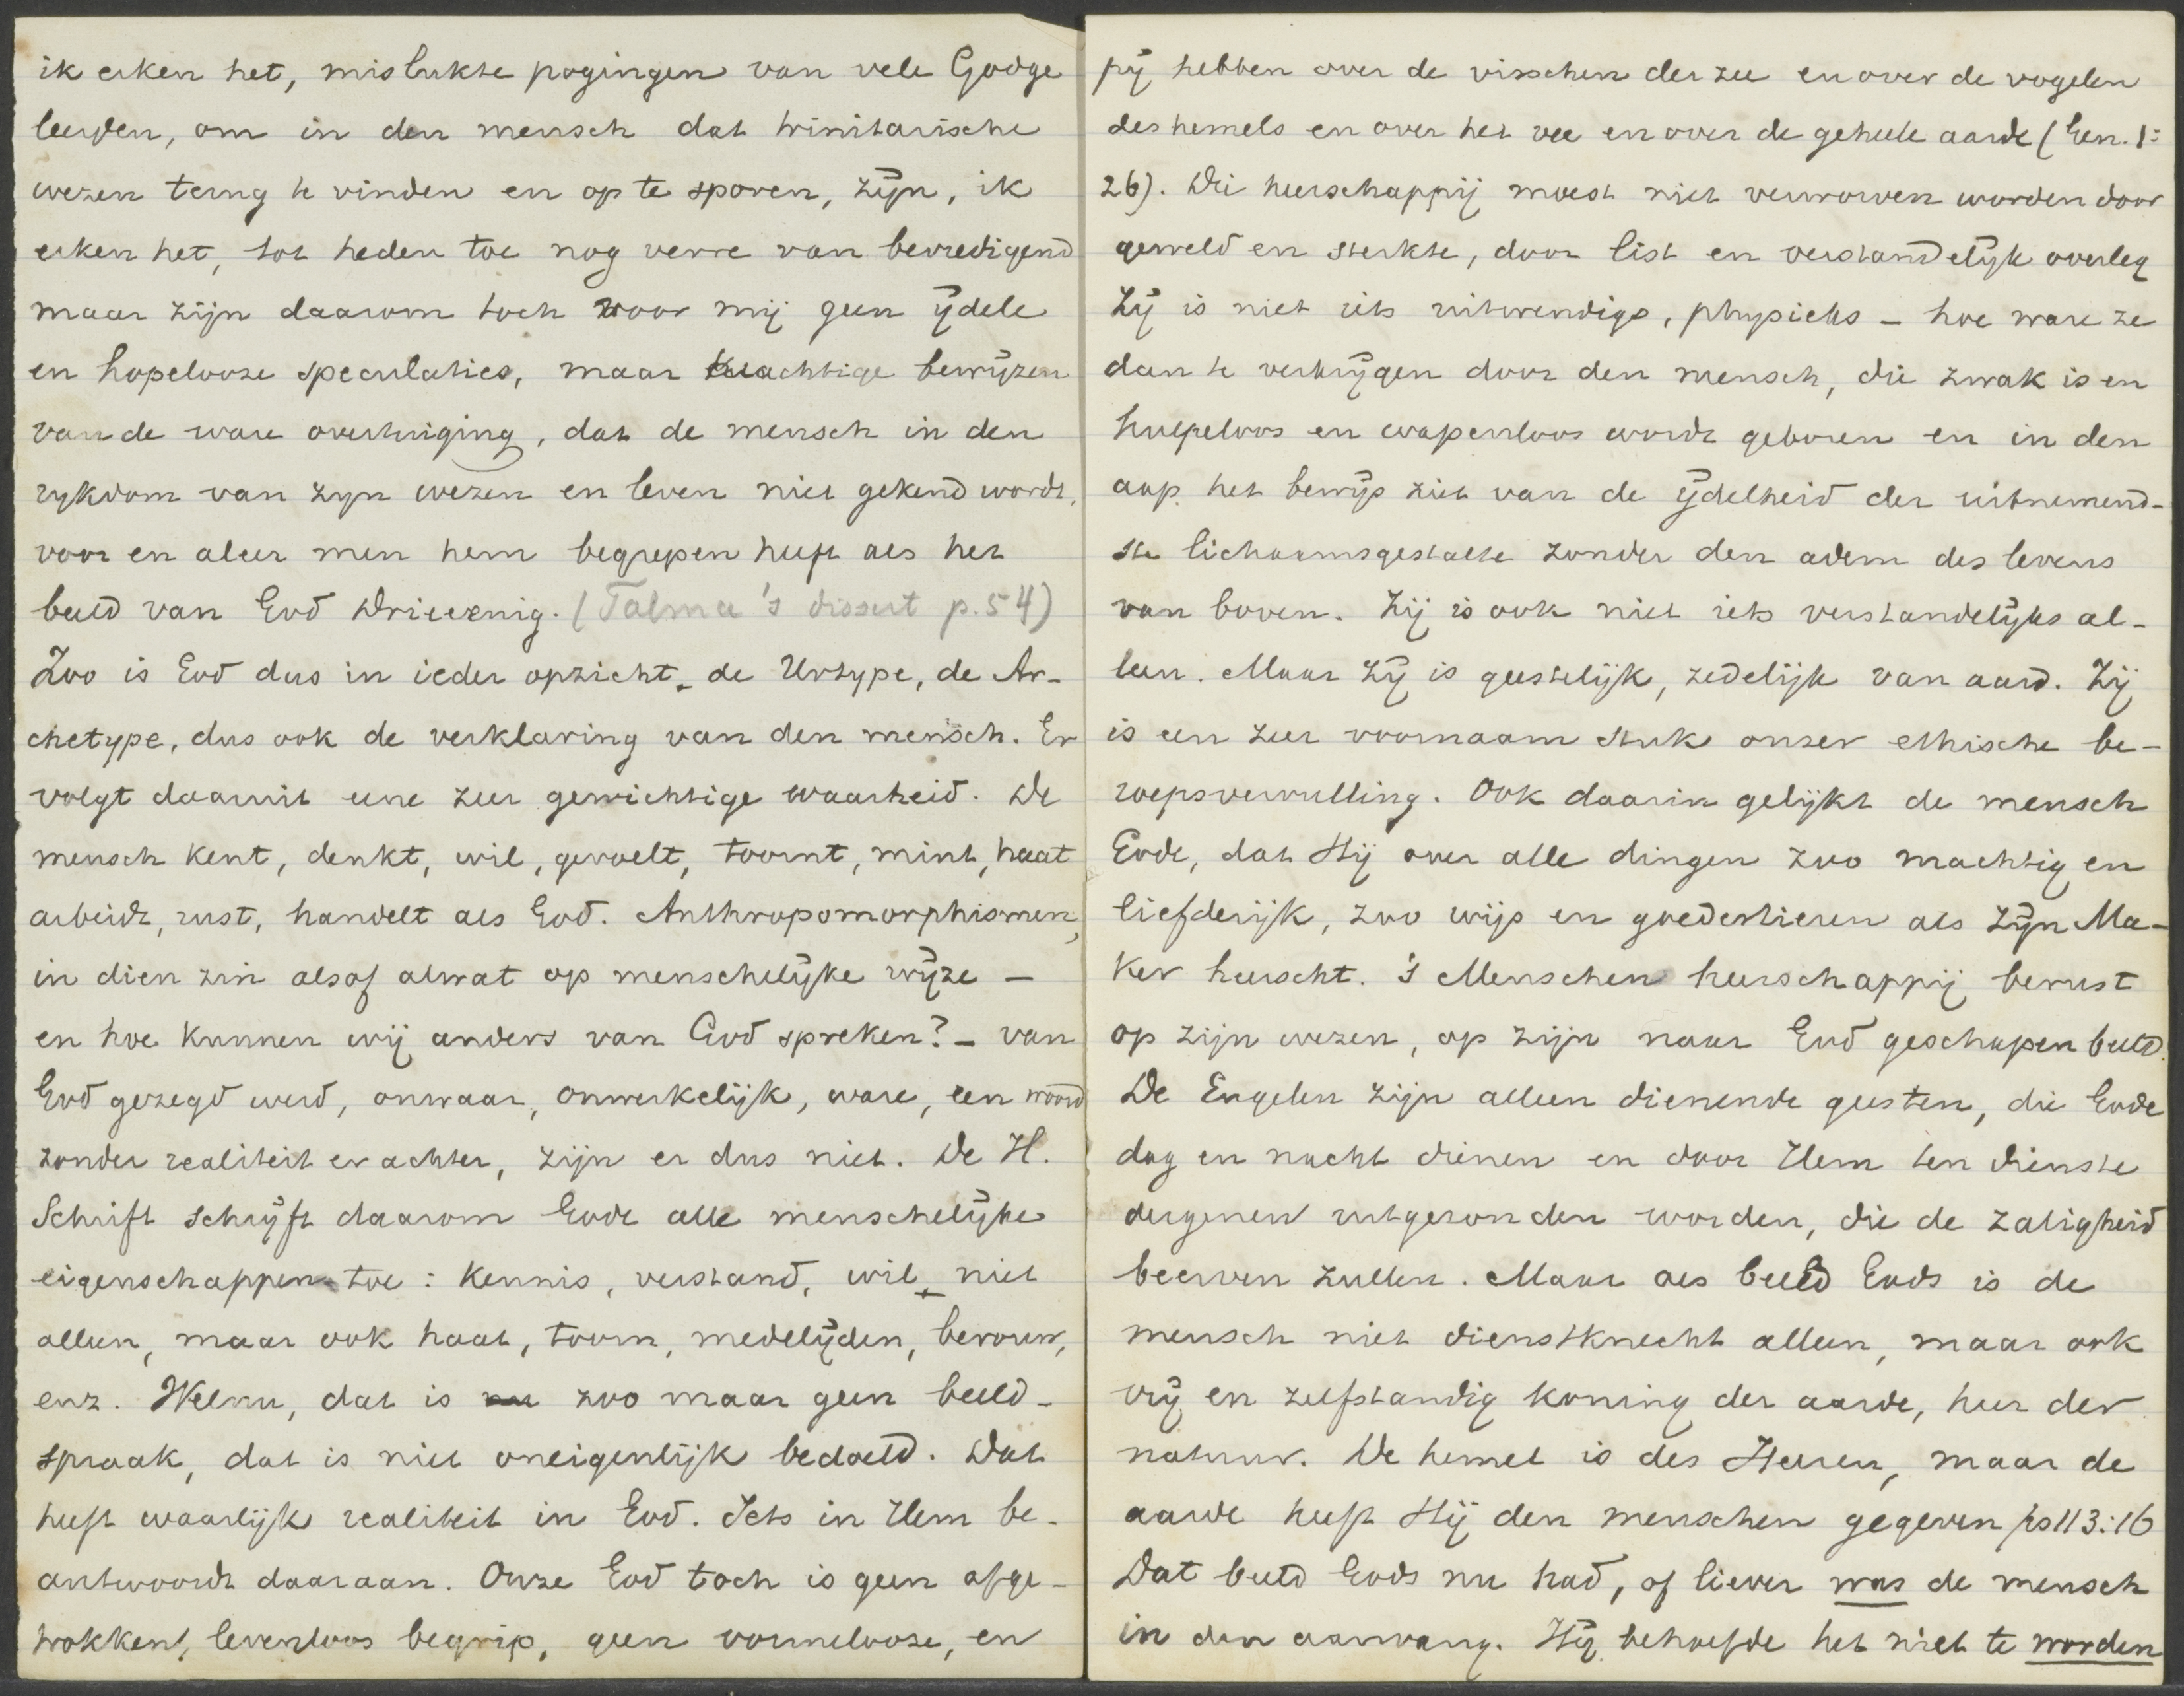 ik erken het, mislukte pogingen van vele Godge
leerden, om in den mensch dat trinitarische
wezen terug te vinden en op te sporen, zijn, ik
erken het, tot heden toe nog verre van bevredigend
maar zijn daarom toch voor mij geen ijdele
en hopelooze speculaties, maar krachtige bewijzen
van de ware overtuiging, dat de mensch in den
rykdom van zyn wezen en leven niet gekend wordt,
voor en aleer men hem begrepen heeft als het
beeld van God Drieeenig. (Talma's dissert p. 54)
Zoo is God dus in ieder opzicht de Urtype, de Ar-
chetype, dus ook de verklaring van den mensch. Er
volgt daaruit eene zeer gewichtige waarheid. De
mensch kent, denkt, wil, gevoelt, toornt, mint, haat
arbeidt, rust, handelt als God. Anthropomorphismen,
in dien zin alsof alwat op menschelijke wijze –
en hoe kunnen wij anders van God spreken? – van
God gezegd werd, onwaar, onwerkelijk, ware, een woord
zonder realiteit er achter, zijn er dus niet. De H.
Schrift schrijft daarom Gode alle menschelijke
eigenschappen toe: kennis, verstand, wil, niet
alleen, maar ook haat, toorn, medelijden, berouw,
enz. Welnu, dat is zoo maar geen beeld-
spraak, dat is niet oneigenlijk bedoeld. Dat
heeft waarlijk realiteit in God. Iets in Hem be-
antwoordt daaraan. Onze God toch is geen afge-
trokken, levenloos begrip, geen vormelooze, en
pij hebben over de visschen der zee en over de vogelen
des hemels en over het vee en over de geheele aarde (Gen. 1:
26). Die heerschappij moest niet verworven worden door
geweld en sterkte, door list en verstandelijk overleg
Zij is niet iets uitwendigs, physieks – hoe ware ze
dan te verkrijgen door den mensch, die zwak is en
hulpeloos en wapenloos wordt geboren en in den
aap het bewijs ziet van de ijdelheid der uitnemend-
ste lichaamsgestalte zonder den adem des levens
van boven. Zij is ook niet iets verstandelijks al-
leen. Maar zij is geestelijk, zedelijk van aard. Zij
is een zeer voornaam stuk onzer ethische be-
roepsvervulling. Ook daarin gelijkt de mensch
Gode, dat Hij over alle dingen zoo machtig en
liefderijk, zoo wijs en goedertieren als zijn Ma-
ker heerscht. 's Menschen heerschappij berust
op zijn wezen, op zijn naar God geschapen beeld.
De Engelen zijn alleen dienende geesten, die Gode
dag en nacht dienen en door Hem ten dienste
dergenen uitgezonden worden, die de zaligheid
beerven zullen. Maar als beeld Gods is de
mensch niet dienstknecht alleen, maar ook
vrij en zelfstandig koning der aarde, heer der
natuur. De hemel is des Heeren, maar de
aarde heeft Hij den menschen gegeven ps 113:16
Dat beeld Gods nu had, of liever was de mensch
in den aanvang. Hij behoefde het niet te worden